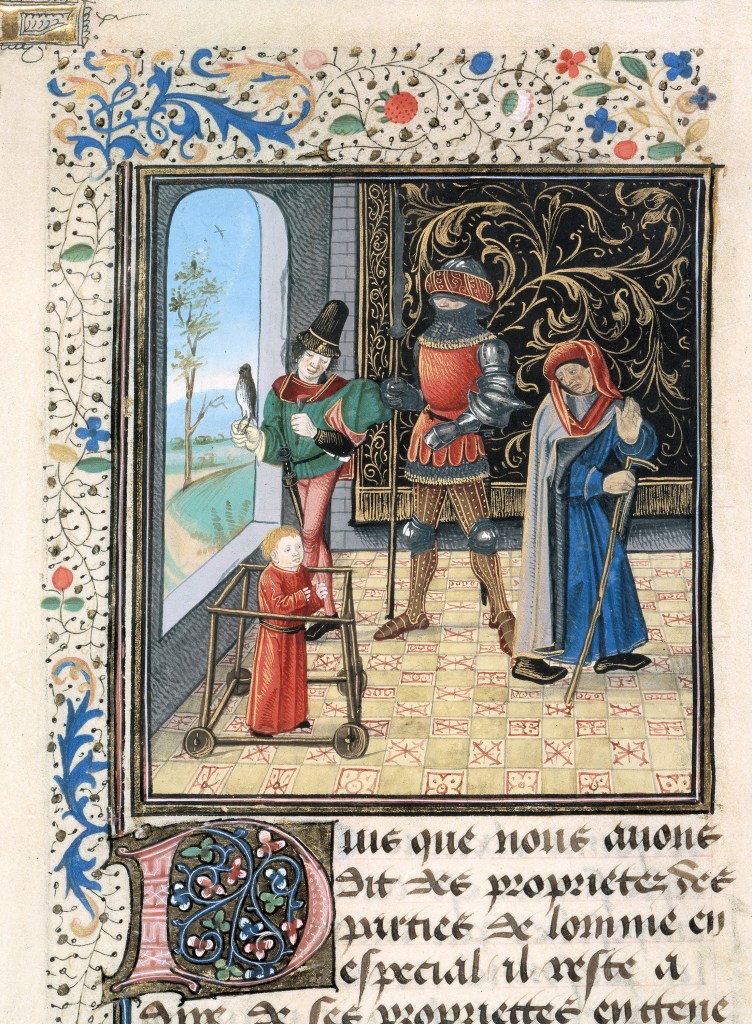 Puis que nous auons
dit des proprietez des
parties de lomme en
especial il reste a
dire de ses propriettes en gene